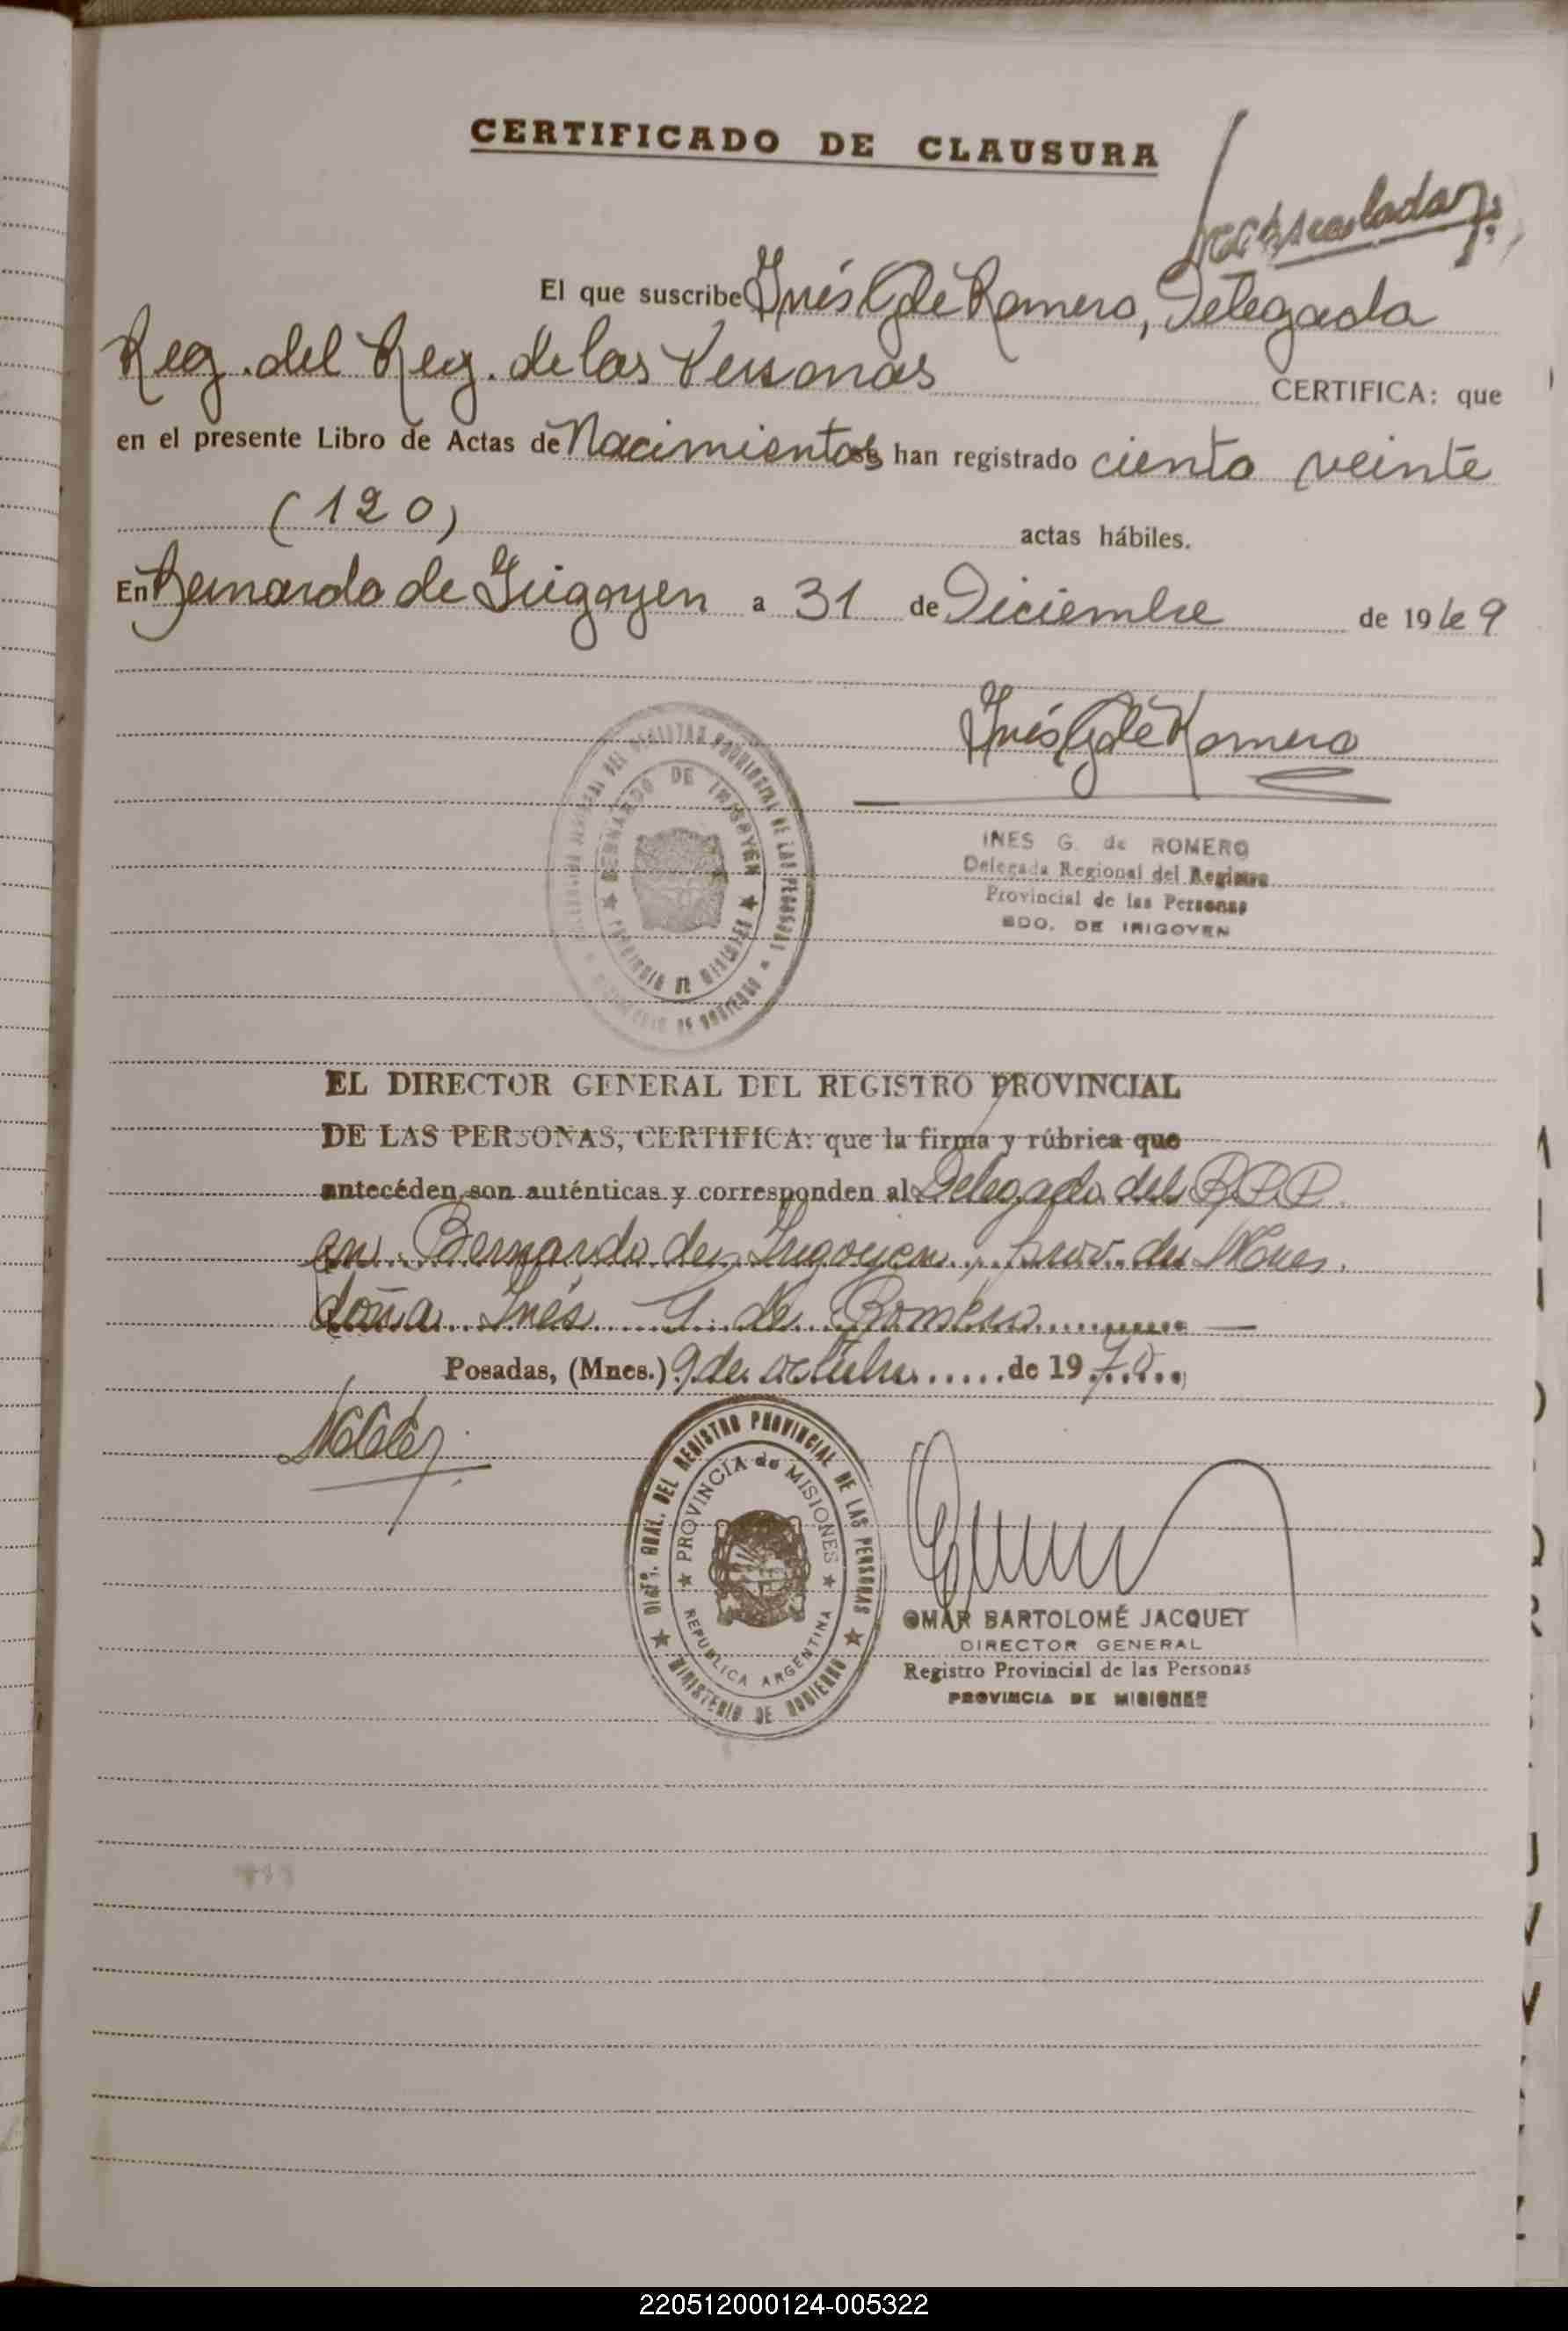 CERTIFICADO DE CLAUSURA
El que suscribe Inés G de Romero, Delegada
Reg. del Reg. de las Personas CERTIFICA: que
en el presente Libro de Actas de Nacimientos se han registrado ciento veinte
(120) actas hábiles.
En Bernardo de Irigoyen a 31 de Diciembre de 1969
Inés G de Romero
REGISTRO PROVINCIAL DE LAS PERSONAS
BERNARDO DE IRIGOYEN
PROVINCIA DE MISIONES
MINISTERIO DE GOBIERNO
INES G. de ROMERO
Delegada Regional del Registro
Provincial de las Personas
BDO. DE IRIGOYEN
EL DIRECTOR GENERAL DEL REGISTRO PROVINCIAL
DE LAS PERSONAS, CERTIFICA: que la firma y rúbrica que
antecéden, son auténticas y corresponden al Delegado del R.P.P.
en Bernardo de Irigoyen, prov. de Mnes.
doña Inés G. de Romero
Posadas, (Mnes.) 9 de octubre de 1970
DIREC. GRAL. DEL REGISTRO PROVINCIAL DE LAS PERSONAS
PROVINCIA de MISIONES
REPUBLICA ARGENTINA
MINISTERIO DE GOBIERNO
OMAR BARTOLOMÉ JACQUET
DIRECTOR GENERAL
Registro Provincial de las Personas
PROVINCIA DE MISIONES
220512000124-005322